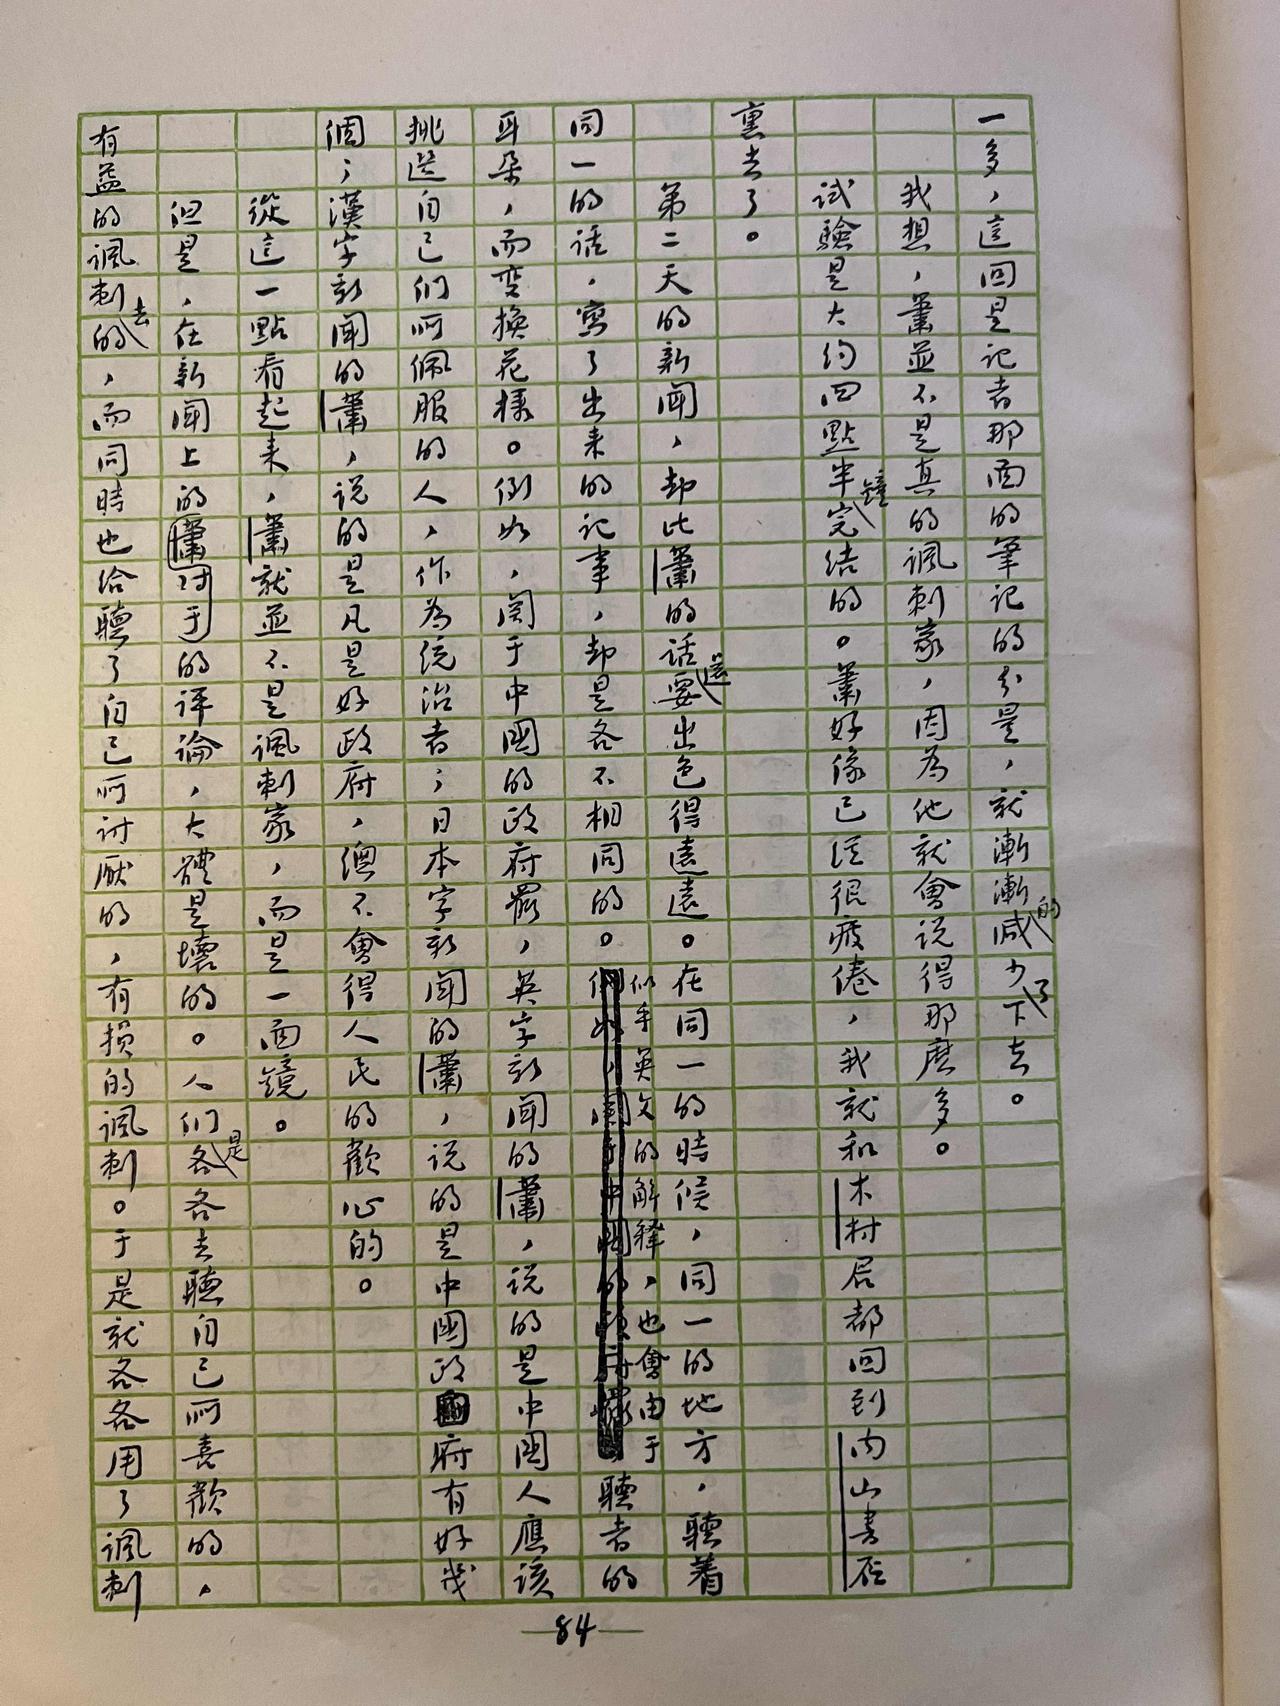 一多，這回是記者那面的筆記的分是，就漸漸的減少了下去。
我想，蕭並不是真的諷刺家，因為他就會说得那麽多。
試驗是大约四點半鐘完结的。蕭好像已经很疲倦，我就和木村君都回到内山書店
裏去了。
第二天的新聞，却比蕭的話還要出色得遠遠。在同一的時候，同一的地方，聽着
同一的話，寫了出来的記事，却是各不相同的。似乎英文的解釋，也會由于聽者的
耳朵，而变換花樣。例如，関于中國的政府罷，英字新聞的蕭，说的是中國人應該
挑选自己们所佩服的人，作為统治者；日本字新聞的蕭，说的是中國政府有好幾
個；漢字新聞的蕭，说的是凡是好政府，總不會得人民的歡心的。
從這一點看起来，蕭就並不是諷刺家，而是一面镜。
但是，在新聞上的对于蕭的评論，大體是壞的。人们是各各去聽自己所喜歡的，
有益的諷刺去的，而同時也給聽了自己所讨厭的，有損的諷刺。于是就各各用了諷刺
—84—